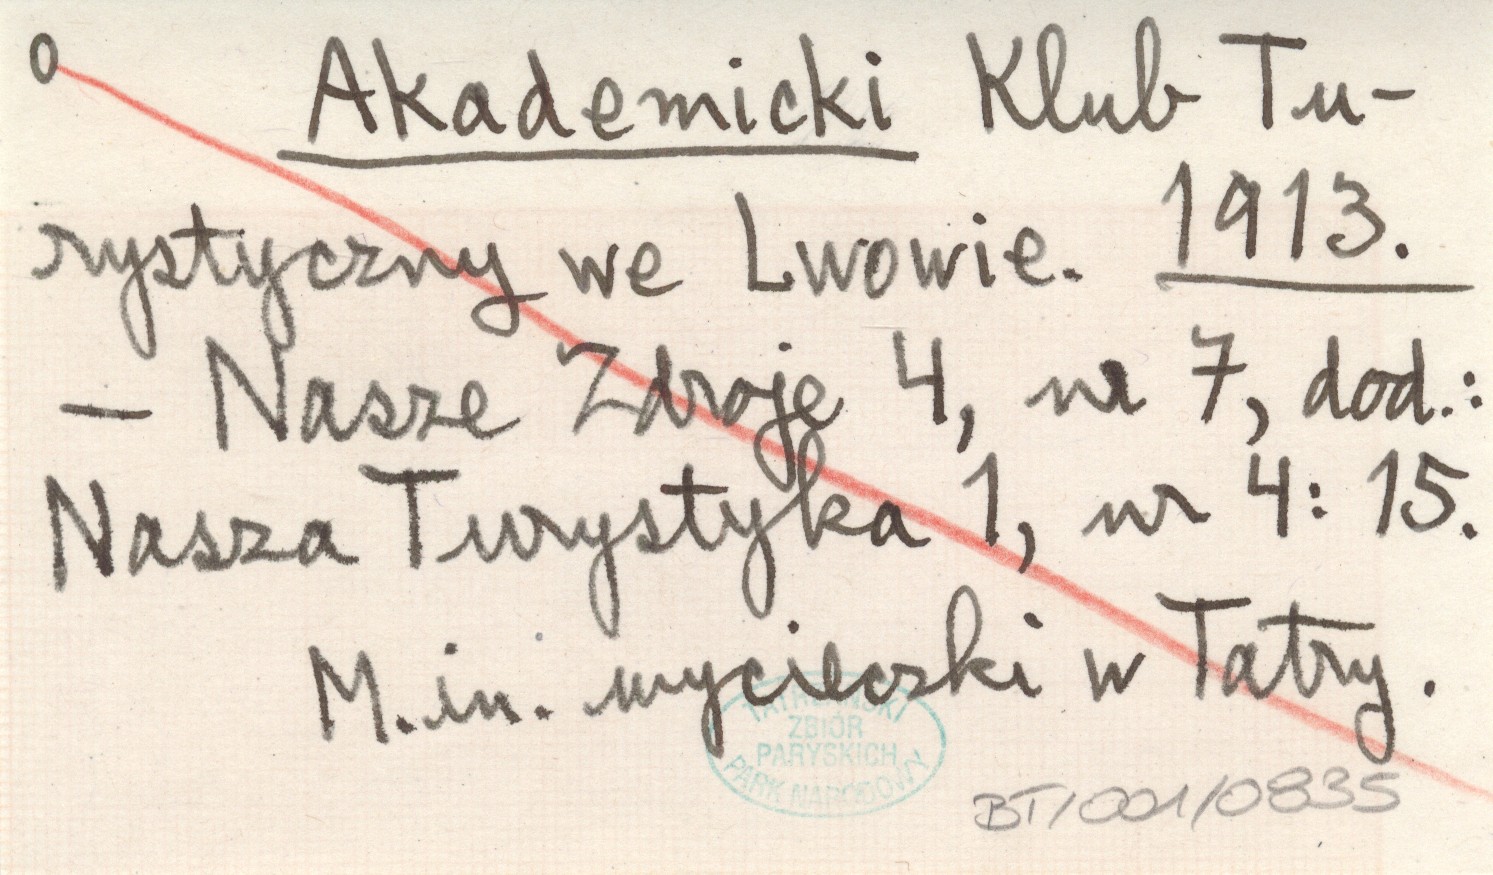 o Akademicki Klub Tu-
rystyczny we Lwowie. 1913.
— Nasze Zdroje 4, nr 7, dod.:
Nasza Turystyka 1, nr 4: 15.
M.in. wycieczki w Tatry.
TATRZAŃSKI
ZBIÓR
PARYSKICH
PARK NARODOWY
BT/001/0835